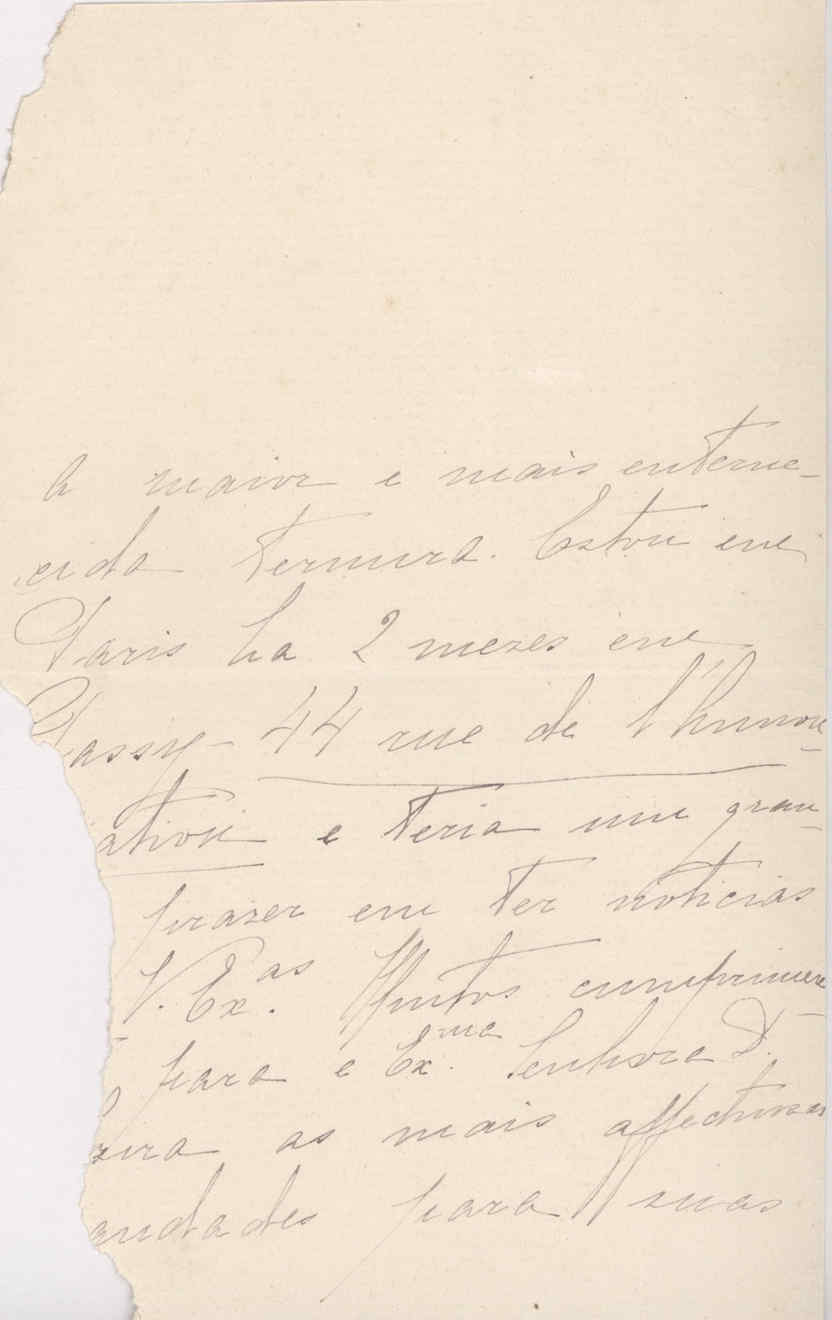 a maior e mais enterne-
cida ternura. Estou em
Paris ha 2 mezes em
Passy - 44 rue de l'Annon-
ciation e teria um gran-
prazer em ter noticias
V. Ex.as Muitos cumprimen-
para e Ex.ma Senhora D.
as mais affectuosas
saudades para suas